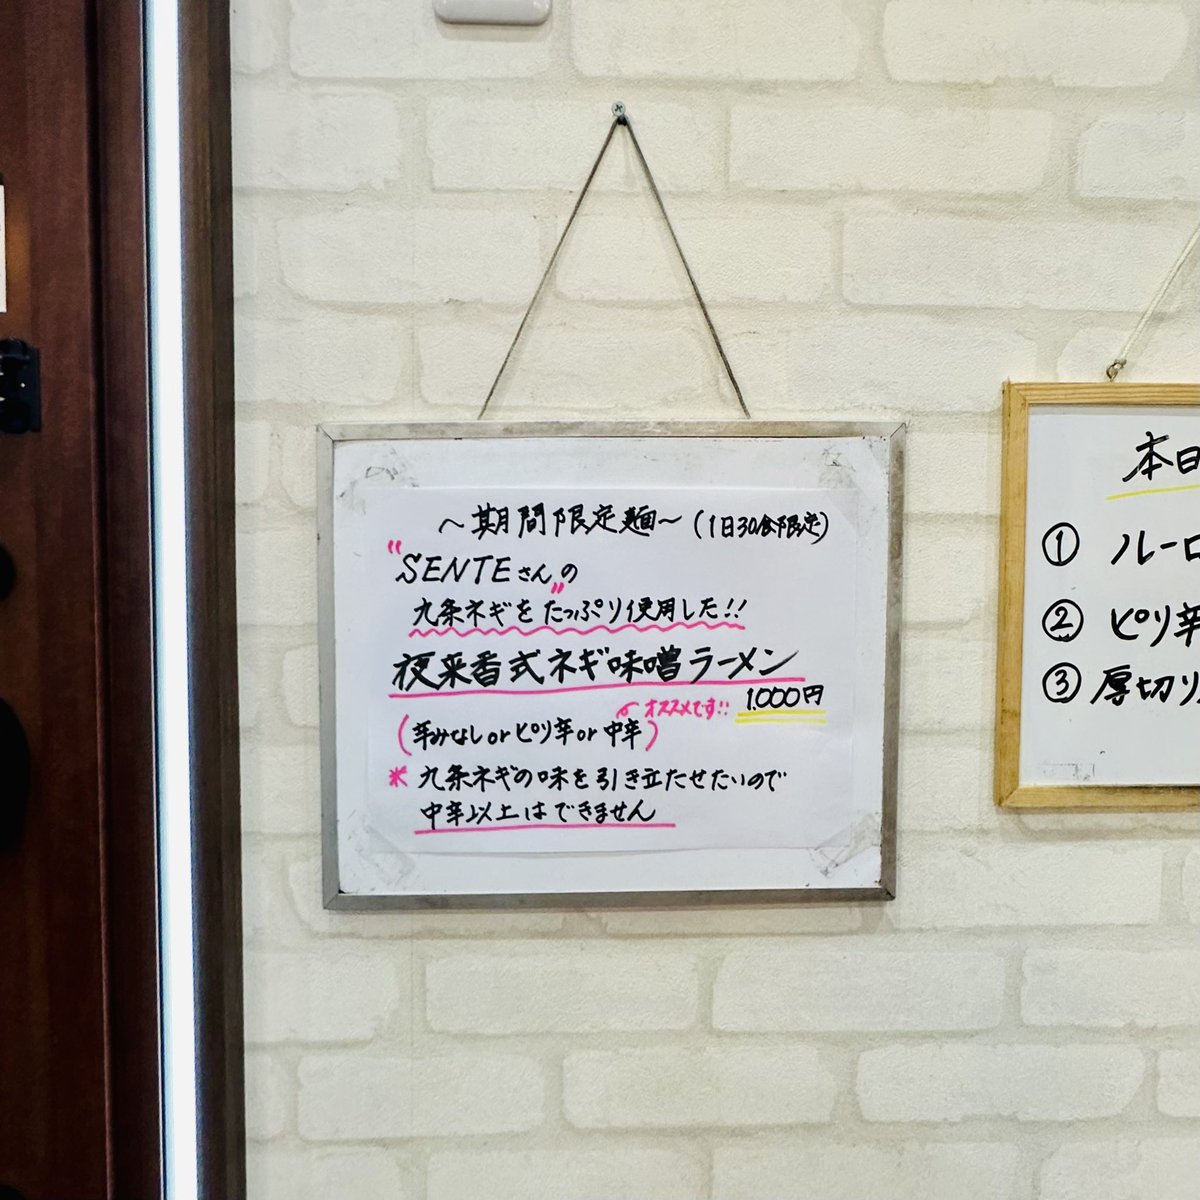 ～期間限定麺～(1日30食限定)
"SENTEさん"の
九条ネギをたっぷり使用した!!
夜来香式ネギ味噌ラーメン
オススメです!! 1,000円
(辛みなしorピリ辛or中辛)
※九条ネギの味を引き立たせたいので
中辛以上はできません
本日
① ルーロ
② ピリ辛
③ 厚切り